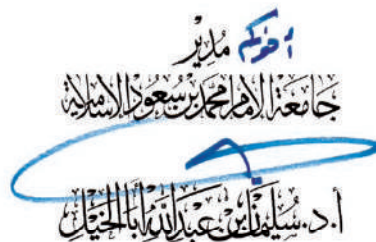 أخوكم مدير
جامعة الإمام محمد بن سعود الإسلامية
أ.د. سليمان بن عبدالله أبا الخيل